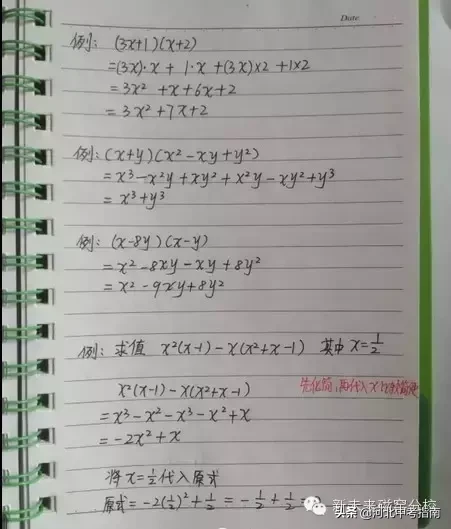 Date
例: (3x+1)(x+2)
=(3x)·x + 1·x +(3x)×2 +1×2
= 3x² +x + 6x+2
= 3x²+7x+2
例: (x+y)(x²-xy+y²)
= x³-x²y+xy²+x²y-xy²+y³
= x³+y³
例: (x-8y)(x-y)
= x²-8xy-xy+8y²
= x²-9xy+8y²
例: 求值 x²(x-1)-x(x²+x-1) 其中 x=1/2
x²(x-1)-x(x²+x-1) 先化简,再代入x
= x³-x²-x³-x²+x
= -2x²+x
将 x=1/2 代入原式
原式=-2(1/2)²+1/2 = -1/2+1/2=
新未来磁窑分校
头条 @河北中考指南